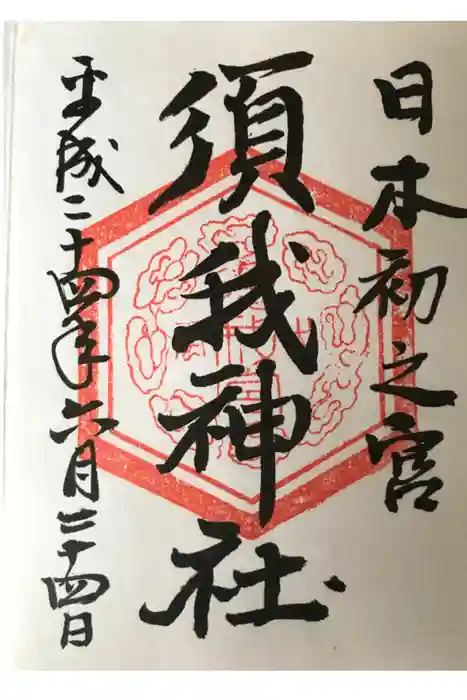 日本初之宮
須我神社
平成二十四年六月二十四日